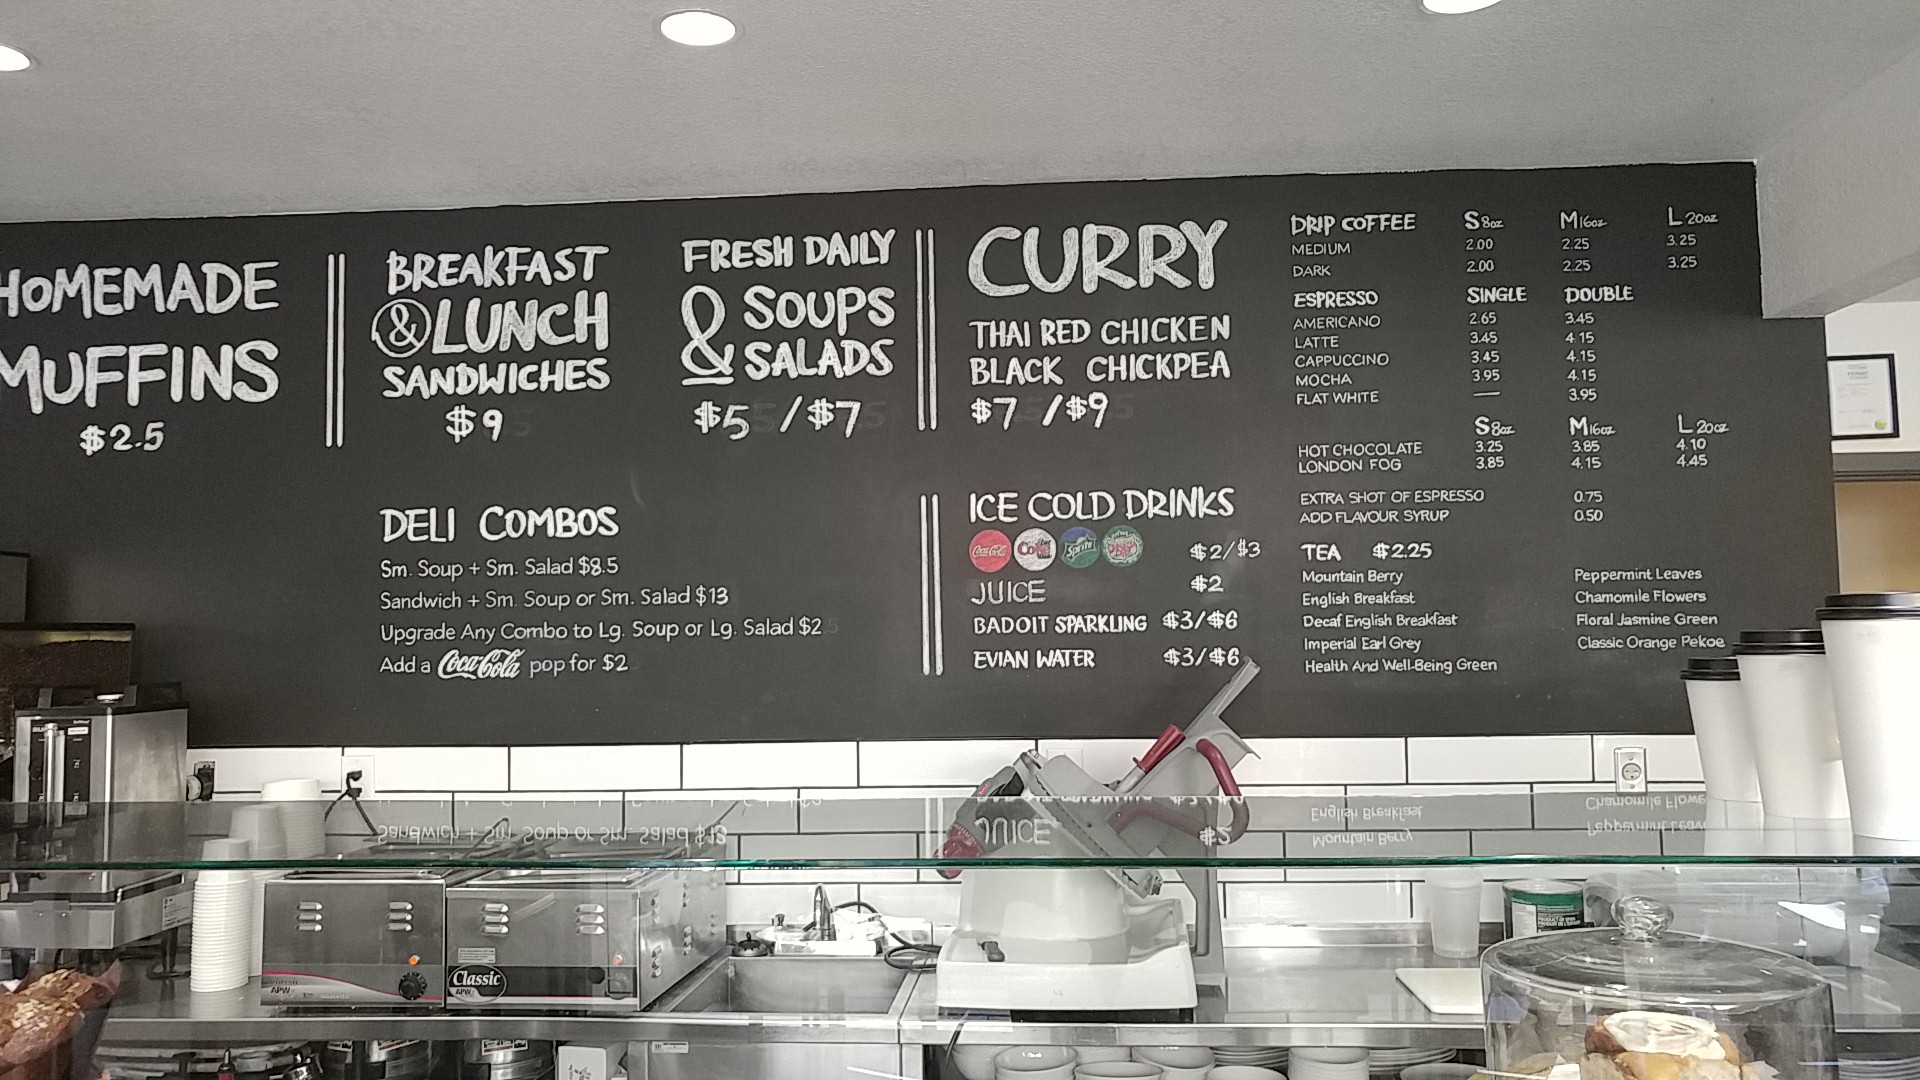 HOMEMADE
MUFFINS
$2.5
BREAKFAST
& LUNCH
SANDWICHES
$9
FRESH DAILY
& SOUPS
SALADS
$5 / $7
CURRY
THAI RED CHICKEN
BLACK CHICKPEA
$7 / $9
DELI COMBOS
Sm. Soup + Sm. Salad $8.5
Sandwich + Sm. Soup or Sm. Salad $13
Upgrade Any Combo to Lg. Soup or Lg. Salad $2
Add a Coca-Cola pop for $2
ICE COLD DRINKS
Coca-Cola Diet Coke Sprite $2/$3
JUICE $2
BADOIT SPARKLING $3/$6
EVIAN WATER $3/$6
DRIP COFFEE S 8oz M 16oz L 20oz
MEDIUM 2.00 2.25 3.25
DARK 2.00 2.25 3.25
ESPRESSO SINGLE DOUBLE
AMERICANO 2.65 3.45
LATTE 3.45 4.15
CAPPUCCINO 3.45 4.15
MOCHA 3.95 4.15
FLAT WHITE — 3.95
S 8oz M 16oz L 20oz
HOT CHOCOLATE 3.25 3.85 4.10
LONDON FOG 3.85 4.15 4.45
EXTRA SHOT OF ESPRESSO 0.75
ADD FLAVOUR SYRUP 0.50
TEA $2.25
Mountain Berry
English Breakfast
Decaf English Breakfast
Imperial Earl Grey
Health And Well-Being Green
Peppermint Leaves
Chamomile Flowers
Floral Jasmine Green
Classic Orange Pekoe
APW
Classic
APW